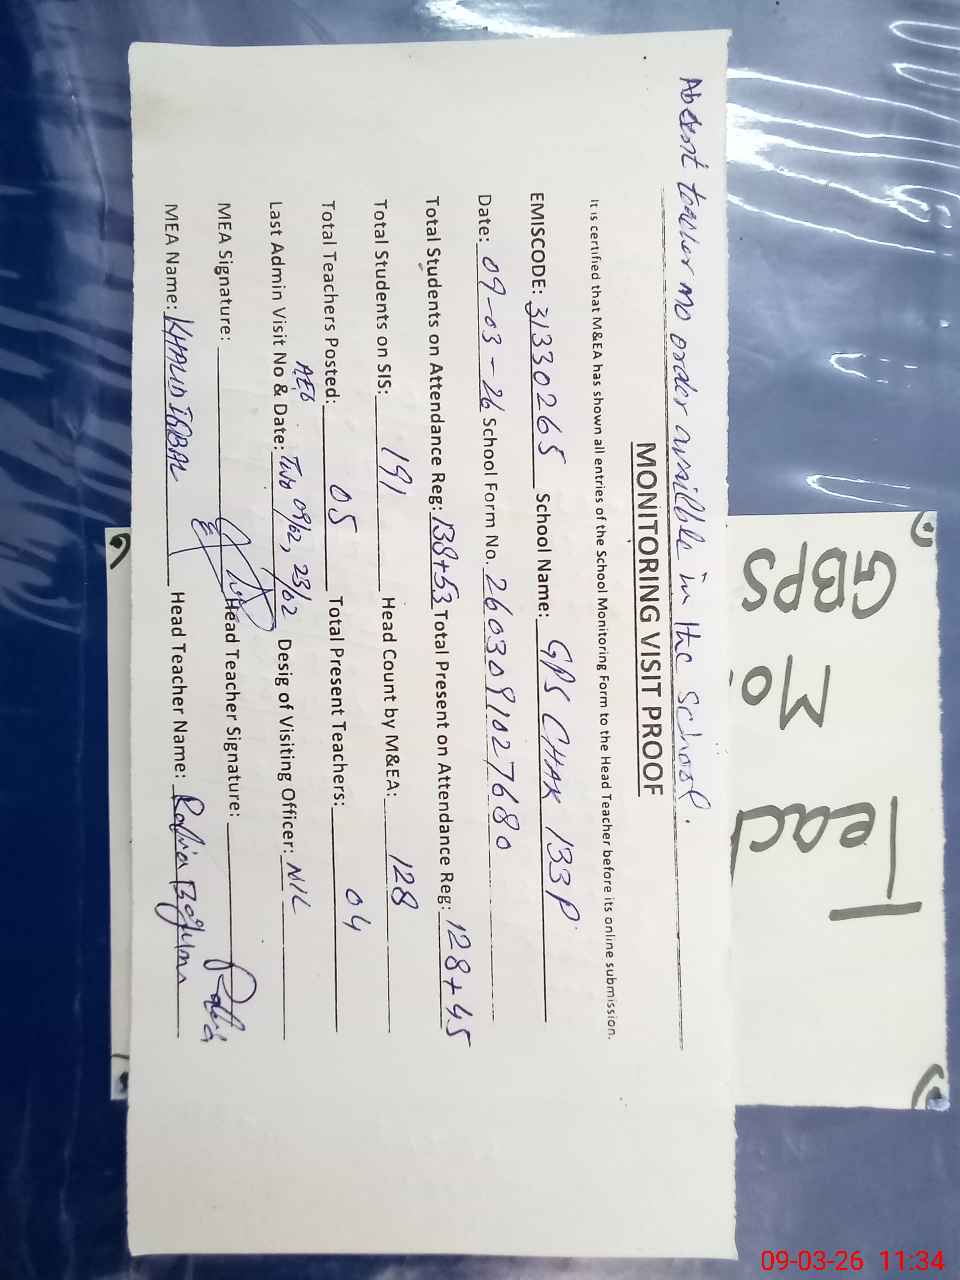 Absent teacher no order availble in the school.
MONITORING VISIT PROOF
It is certified that M&EA has shown all entries of the School Monitoring Form to the Head Teacher before its online submission.
EMISCODE: 31330265 School Name: GPS CHAK 133P
Date: 09-03-26 School Form No. 2603091027680
Total Students on Attendance Reg: 138+53 Total Present on Attendance Reg: 128+45
Total Students on SIS: 191 Head Count by M&EA: 128
Total Teachers Posted: 05 Total Present Teachers: 04
AEO
Last Admin Visit No & Date: Two 09/02, 23/02 Desig of Visiting Officer: NIL
MEA Signature: Head Teacher Signature:
MEA Name: KHALID IQBAL Head Teacher Name: Rabia
GBPS
Mo
Teac
09-03-26 11:34